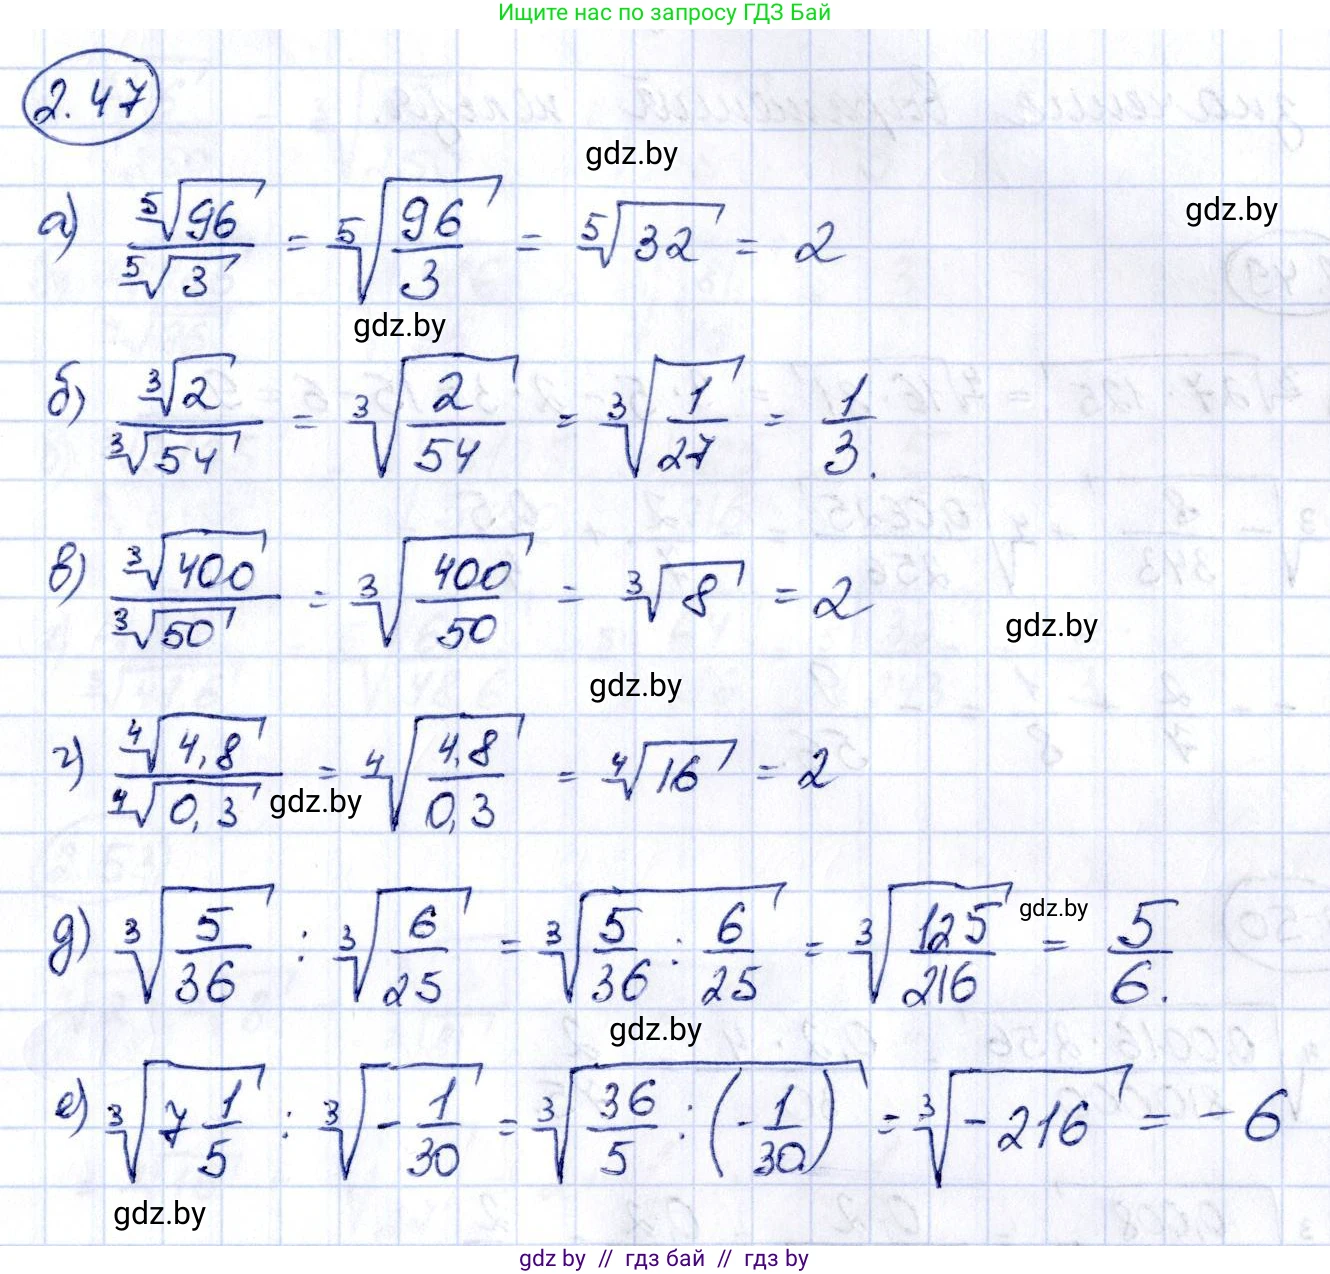 Ищите нас по запросу ГДЗ Бай
2.47
gdz.by
gdz.by
а) ⁵√96 / ⁵√3 = ⁵√(96/3) = ⁵√32 = 2
gdz.by
б) ³√2 / ³√54 = ³√(2/54) = ³√(1/27) = 1/3.
в) ³√400 / ³√50 = ³√(400/50) = ³√8 = 2
gdz.by
gdz.by
г) ⁴√4,8 / ⁴√0,3 = ⁴√(4,8/0,3) = ⁴√16 = 2
gdz.by
д) ³√(5/36) : ³√(6/25) = ³√(5/36 : 6/25) = ³√(125/216) = 5/6.
gdz.by
gdz.by
е) ³√(7 1/5) : ³√(-1/30) = ³√(36/5 : (-1/30)) = ³√(-216) = -6
gdz.by
gdz by // гдз бай // гдз by